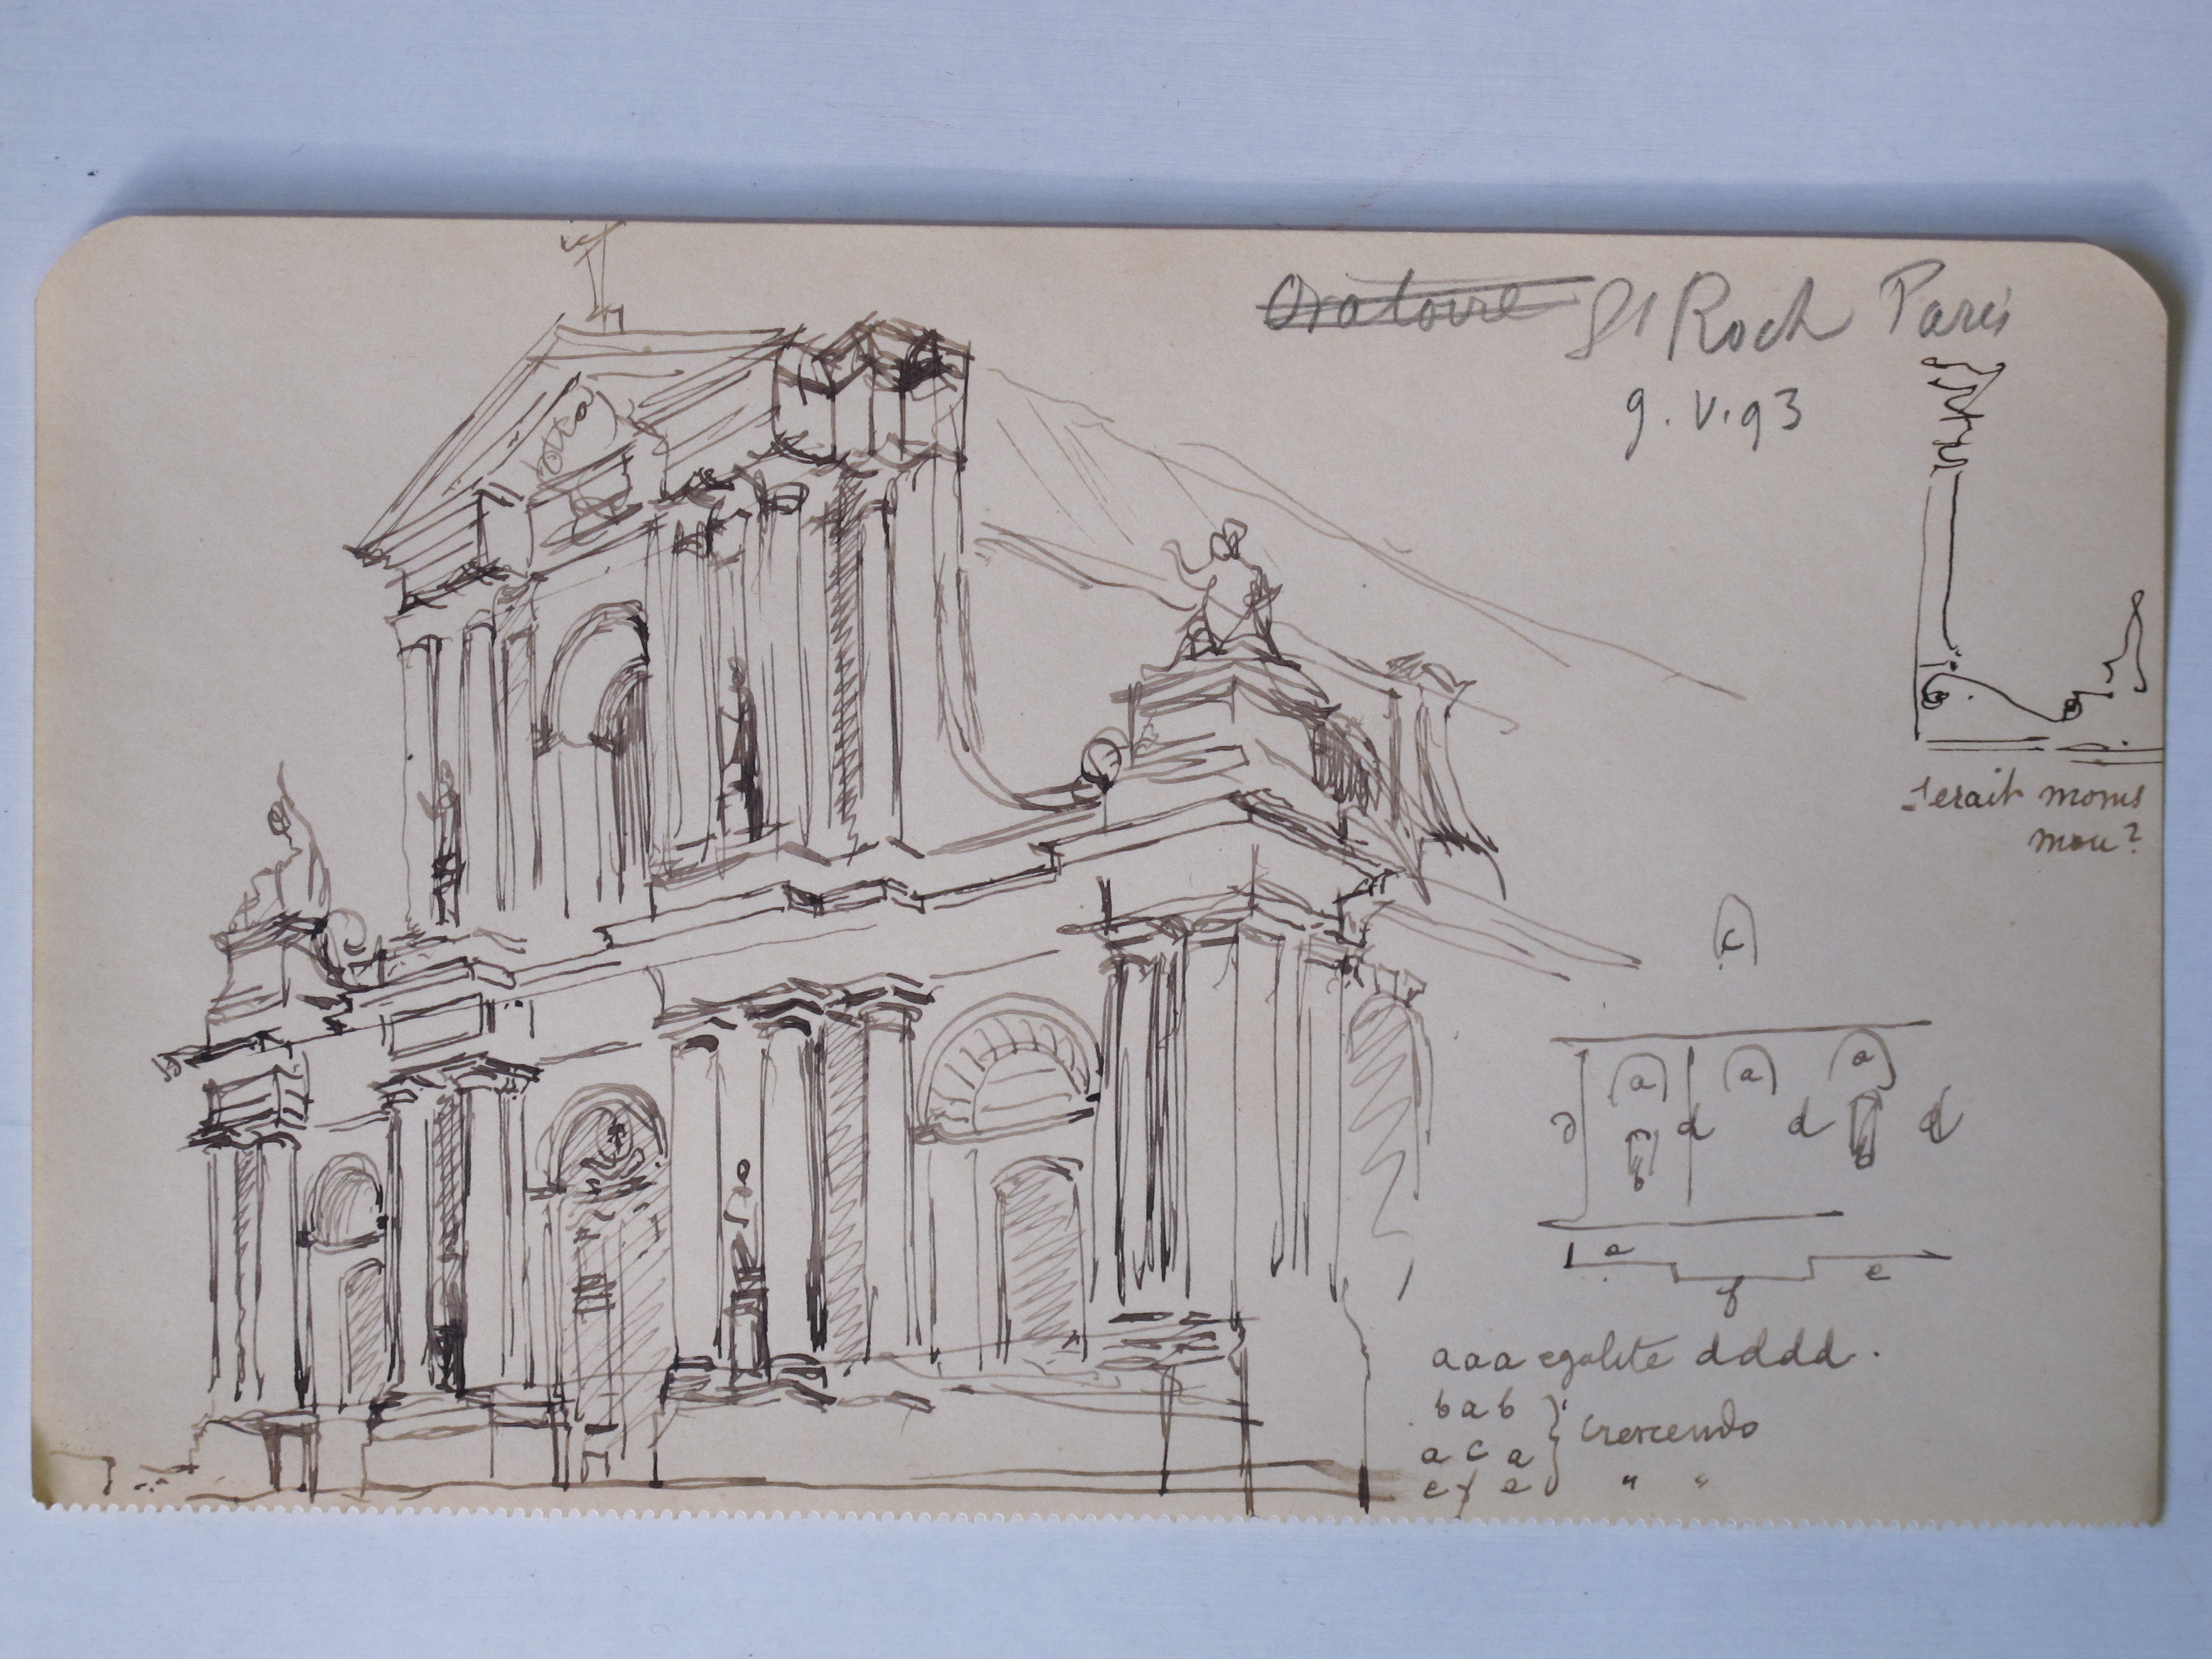 Oratoire St Roch Paris
9.V.93
serait moins
mou?
c
a a a
d d d d
b b
a e
f
aaa egalite dddd.
bab
a c a } Crescendo
e f e " "